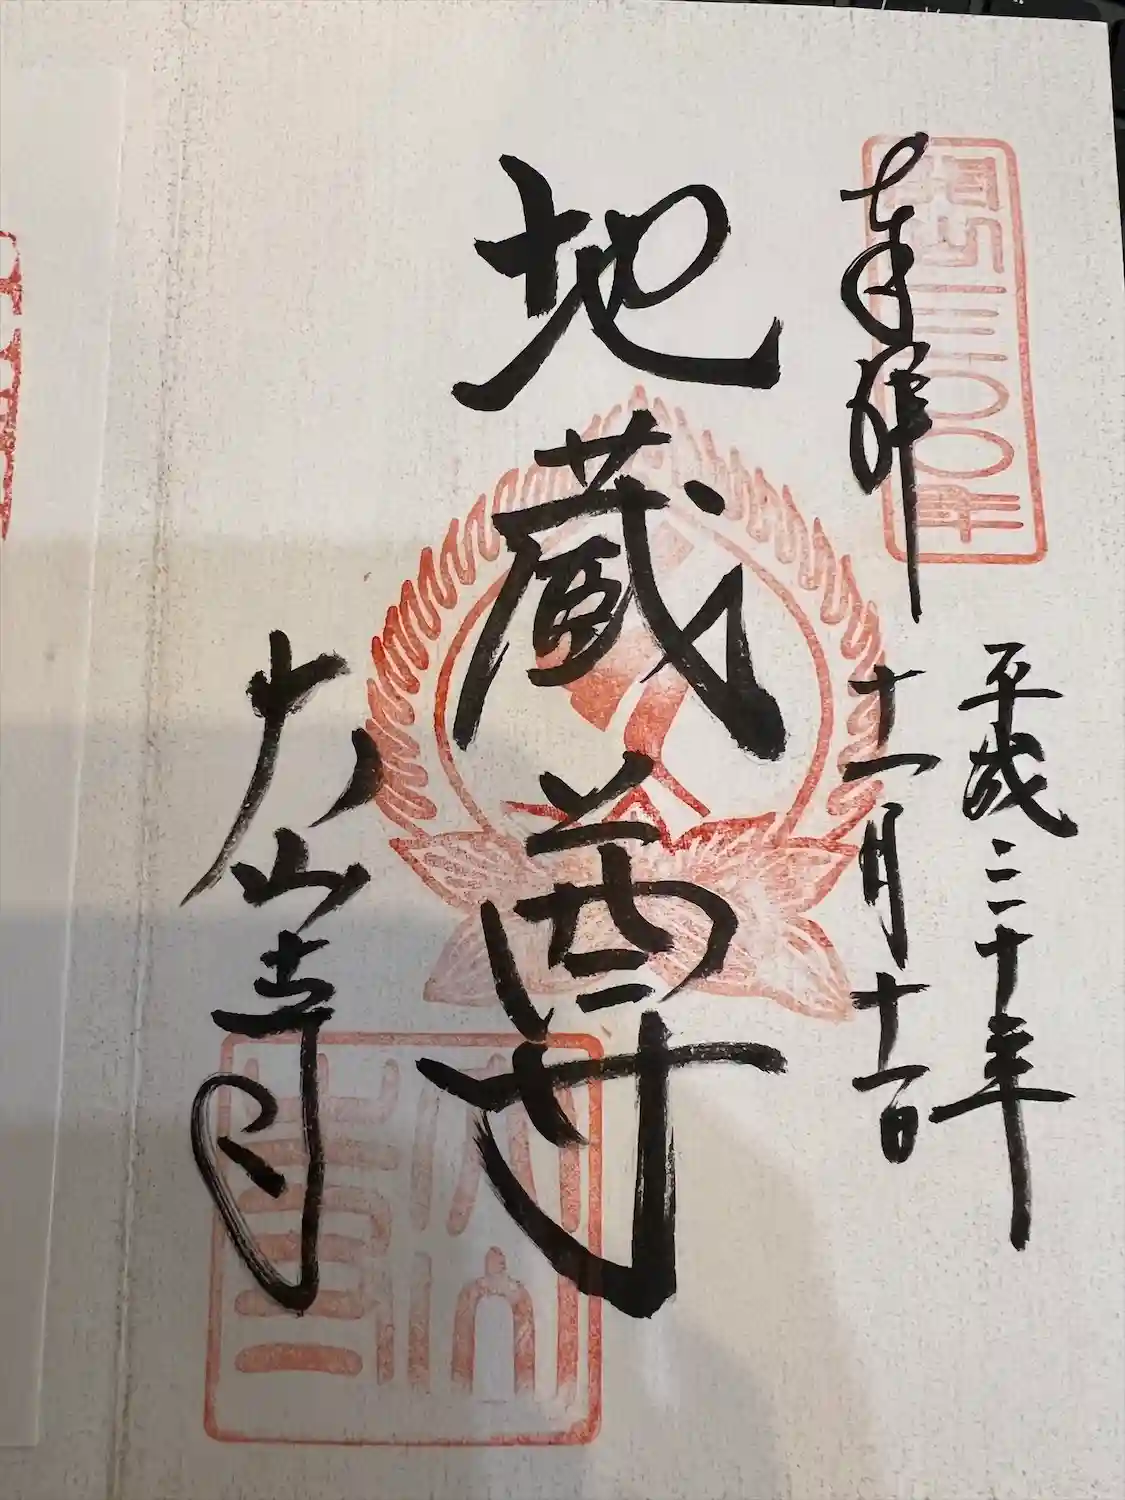 開山一三〇〇年
奉拝
平成三十年
十一月十一日
地蔵尊
大山寺